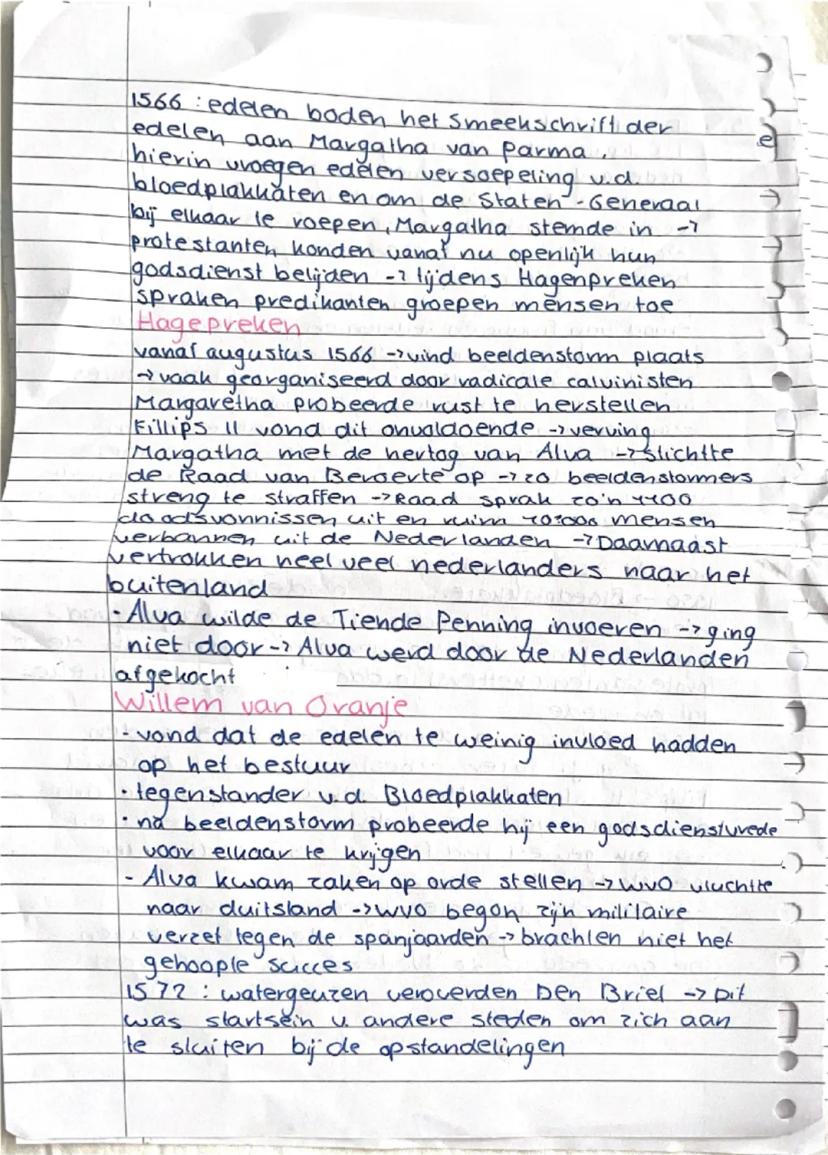 1566 : edelen boden het Smeekschrift der
edelen aan Margatha van Parma
hierin vroegen edelen versoepeling v.d.
bloedplakkaten en om de Staten-Generaal
bij elkaar te roepen, Margatha stemde in →
protestanten konden vanaf nu openlijk hun
godsdienst belijden → tijdens Hagenpreken
spraken predikanten groepen mensen toe
Hagepreken
vanaf augustus 1566 → vind beeldenstorm plaats
→ vaak georganiseerd door radicale calvinisten
Margaretha probeerde rust te herstellen
Fillips II vond dit onvoldoende → verving
Margatha met de hertog van Alva → stichtte
de Raad van Beroerte op → zo beeldenstormers
streng te straffen → Raad sprak zo'n 1100
doodsvonnissen uit en ruim 10.000 mensen
verbannen uit de Nederlanden → Daarnaast
vertrokken heel veel nederlanders naar het
buitenland
· Alva wilde de Tiende Penning invoeren → ging
niet door → Alva werd door de Nederlanden
afgekocht
Willem van Oranje
- vond dat de edelen te weinig invloed hadden
op het bestuur
· tegenstander v.d. Bloedplakkaten
· na beeldenstorm probeerde hij een godsdienstvrede
voor elkaar te krijgen
- Alva kwam zaken op orde stellen → WVO vluchtte
naar duitsland → WVO begon zijn militaire
verzet tegen de spanjaarden → brachten niet het
gehoopte succes
1572 : watergeuzen veroverden Den Briel → Dit
was startsein v. andere steden om zich aan
te sluiten bij de opstandelingen